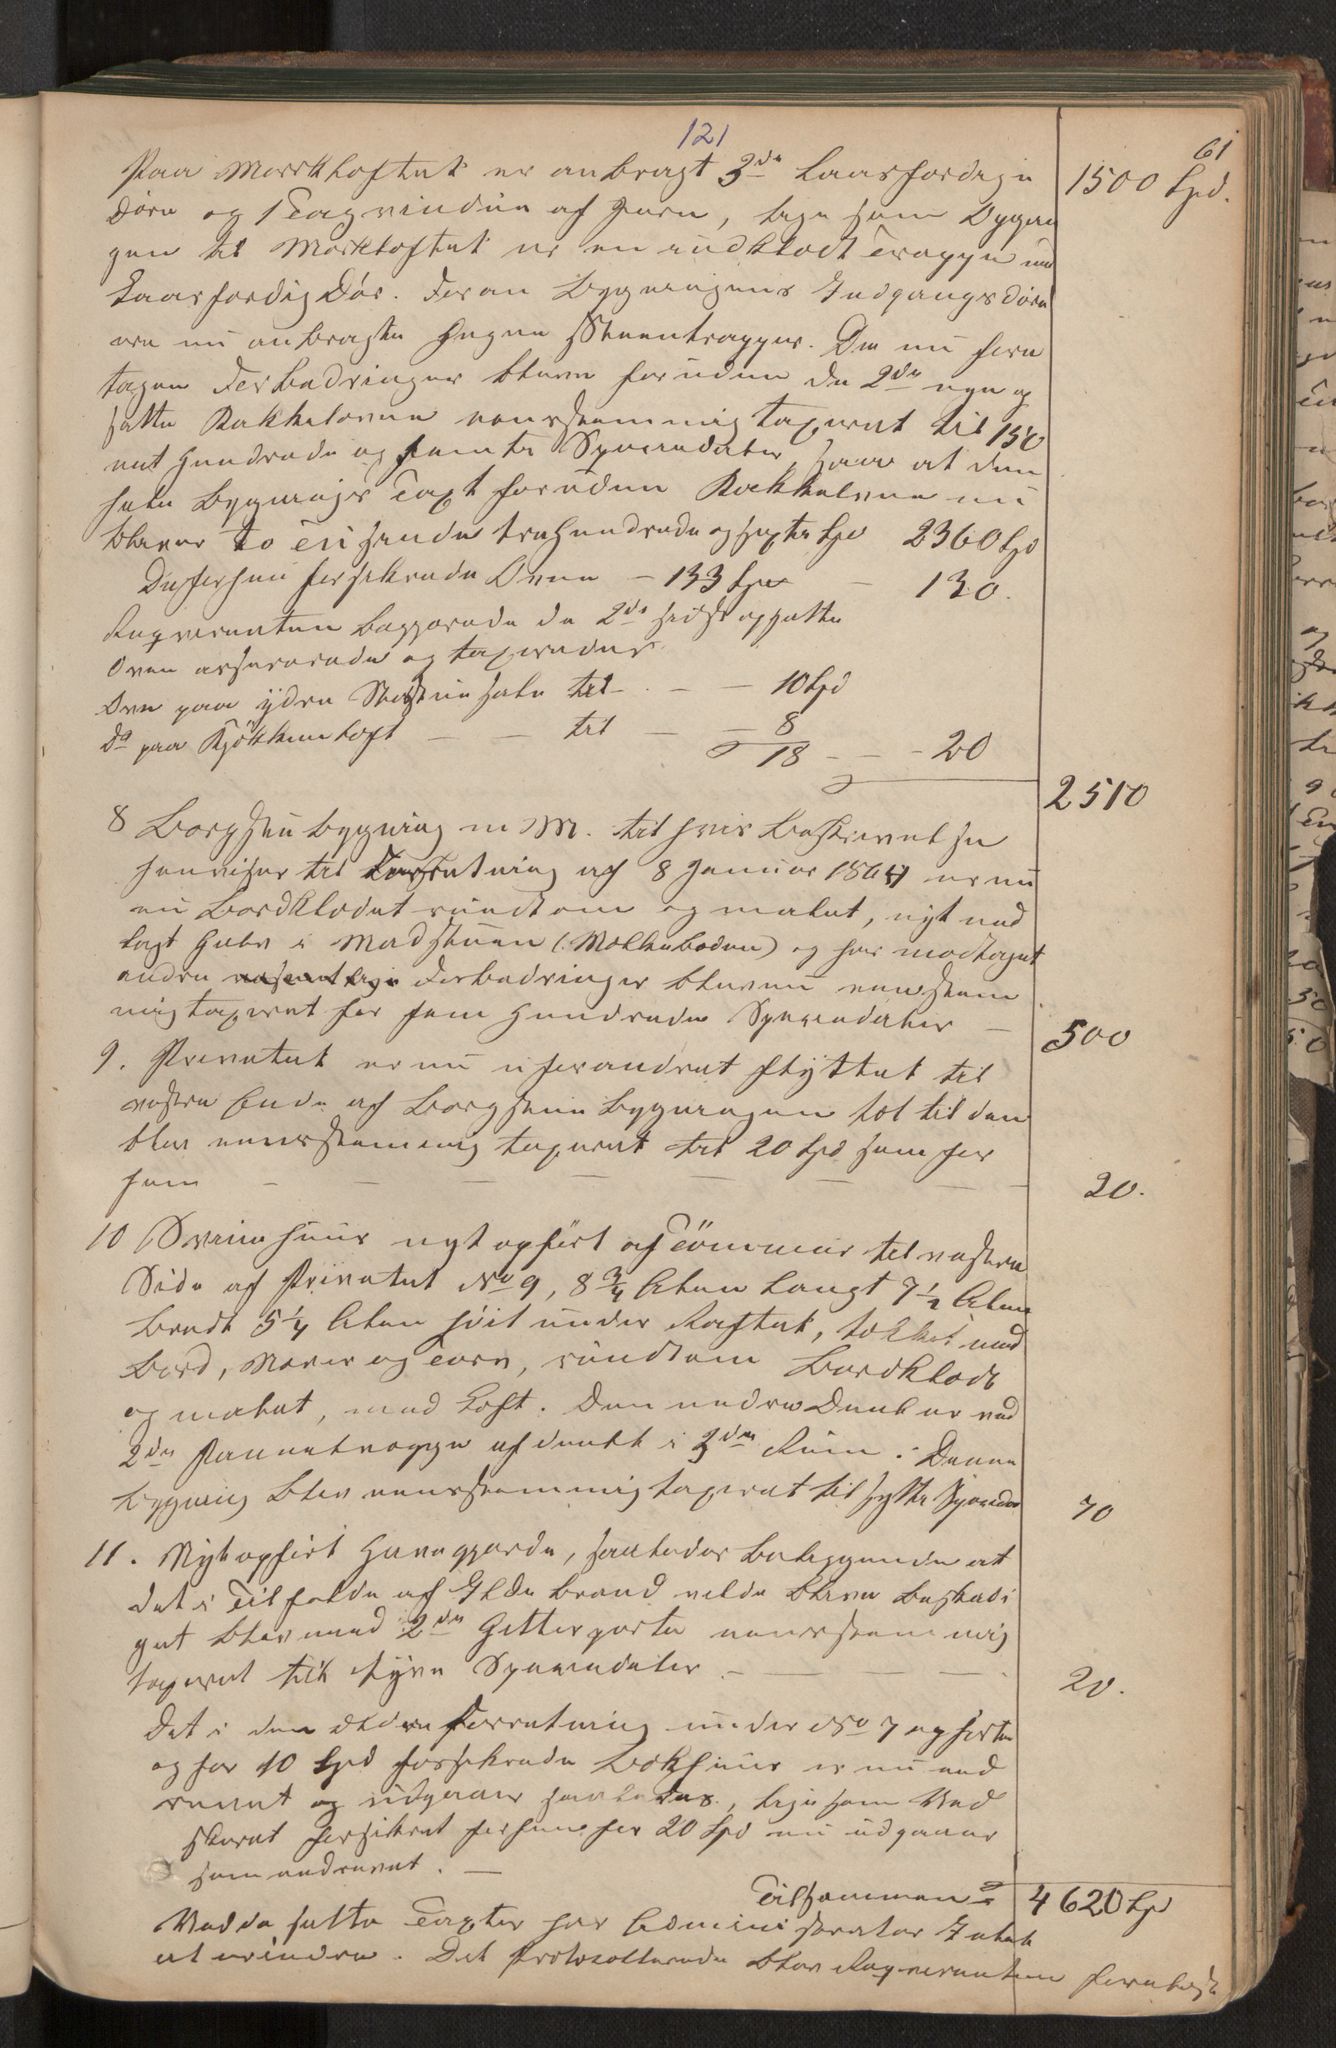 121
61
Paa Mørkloftet er anbragt 3de Laasfærdige 1500 Spd.
Døre og 1 Tagvindue af Jern, lige som Opgan
gen til Mørkloftet er en indklædt Trappe med
Laasfærdig Dør. Foran Bygningens Indgangsdøre
ere nu anbragte Steentrapper. De nu fore
tagne Forbedringer bleve foruden de 2de nye op
satte Kakkelovne eensstemmig taxeret til 150
eet Hundrede og femti Speciedaler, saa at den
hele Bygnings Taxt foruden Kakkelovne nu
bliver to Tusinde trehundrede og sexti Spd 2360 Spd
De forhen forsikrede Ovne – 133 Spd – 130.
Reqvirenten begjærede de 2de sidst opsatte
Ovne assurerede og taxeredes
Ovn paa ydre Storstuesale til – – 10 Spd
Do paa Kjøkkenloft – – til – – 8
18 – – 20
2510
8 Borgstue Bygning m. M. til hvis Beskrivelse
henvises til Forretning af 8 Januar 1864 er nu
en Bordklædet rundtom og malet, nyt ned
lagt Gulv i Madstuen (Melkeboden) og har modtaget
andre væsentlige Forbedringer bleven eensstem
mig taxeret for fem Hundrede Speciedaler – 500
9. Privetet er nu uforandret flyttet til
vestre Ende af Borgstue Bygningen tæt til den
blev eensstemmig taxeret til 20 Spd som for
hen – – – – – – – 20.
10 Sviinhuus nyt opført af Tømmer til vestre
Side af Privetet No 9, 8 3/4 Alen langt 7 1/2 Alen
bredt 5 1/4 Alen høit under Raftet, tækket med
Bord, Næver og Torv, rundtom Bordklædt
og malet, med Loft. Den nedre Deel er ved
2de afdeelt i 3de Rum. Denne
Bygning blev eensstemmig taxeret til sytti Speciedlr 70
11. Nyt opført Havegjerde, saaledes beliggende at
det i Tilfælde af Ildebrand vilde blive beskadi
get blev med 2de Gitterporte eensstemmig
taxeret till tyve Speciedaler – – – – 20.
Det i den ældre Forretning under No 7 opførte
og for 10 Spd forsikrede er nu ned
revet og udgaaer saaledes, lige som Ved
skuret forsikret forhen for 20 Spd nu udgaaer
som nedrevet. –
Tilsammen 4620 Spd
Ved de satte Taxter har Administrator Intet
at erindre. Det Protocollerede blev Reqvirenten forelæst